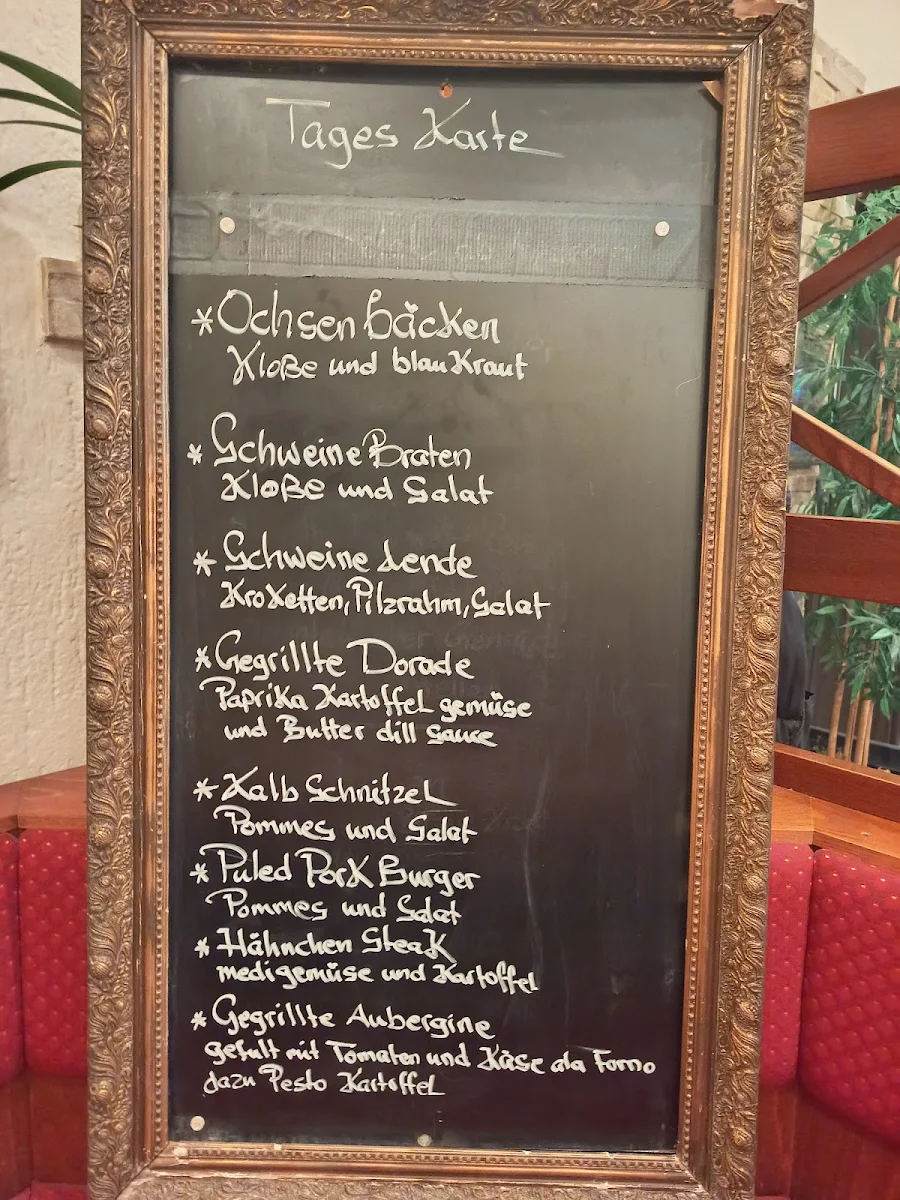 Tages Karte
*Ochsen bäcken
Kloße und blau Kraut
* Schweine Braten
Kloße und Salat
* Schweine Lende
Kroketten, Pilzrahm, Salat
*Gegrillte Dorade
Paprika Kartoffel gemüse
und Butter dill Sauce
* Kalb Schnitzel
Pommes und Salat
* Puled Pork Burger
Pommes und Salat
* Hähnchen Steak
medi gemüse und Kartoffel
* Gegrillte Aubergine
gefult mit Tomaten und Käse ala Forno
dazu Pesto Kartoffel